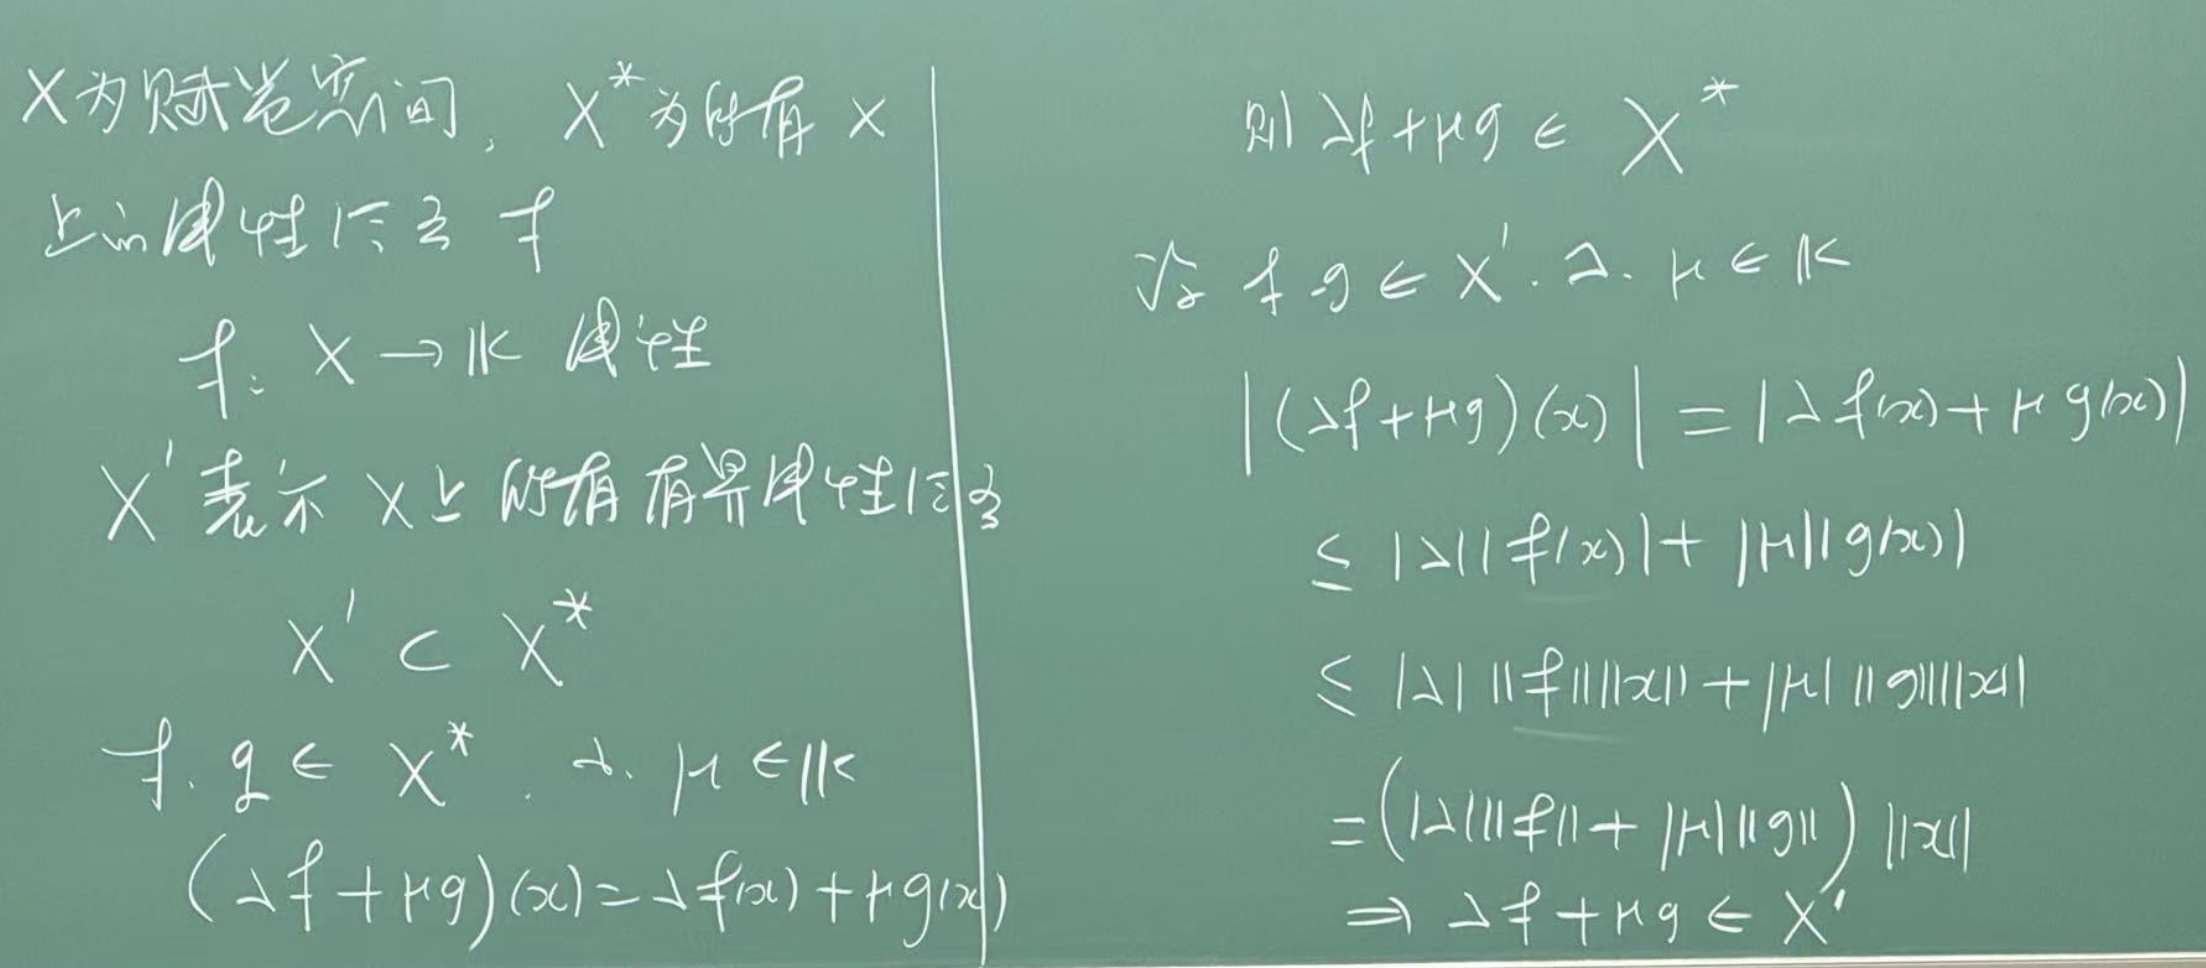 X为赋范空间, X*为所有X
上的线性泛函 f
f: X → 𝕂 线性
X' 表示 X上所有有界线性泛函
X' ⊂ X*
f. g ∈ X*. λ. μ ∈ 𝕂
(λf + μg)(x) = λf(x) + μg(x)
则 λf + μg ∈ X*
设 f. g ∈ X'. λ. μ ∈ 𝕂
|(λf + μg)(x)| = |λf(x) + μg(x)|
≤ |λ||f(x)| + |μ||g(x)|
≤ |λ| ‖f‖‖x‖ + |μ| ‖g‖‖x‖
= (|λ|‖f‖ + |μ|‖g‖) ‖x‖
⇒ λf + μg ∈ X'